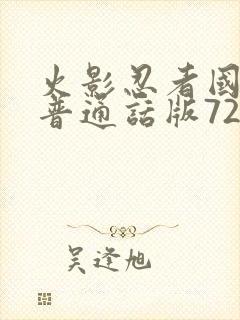 火影忍者國
普通話版72
吴逢旭